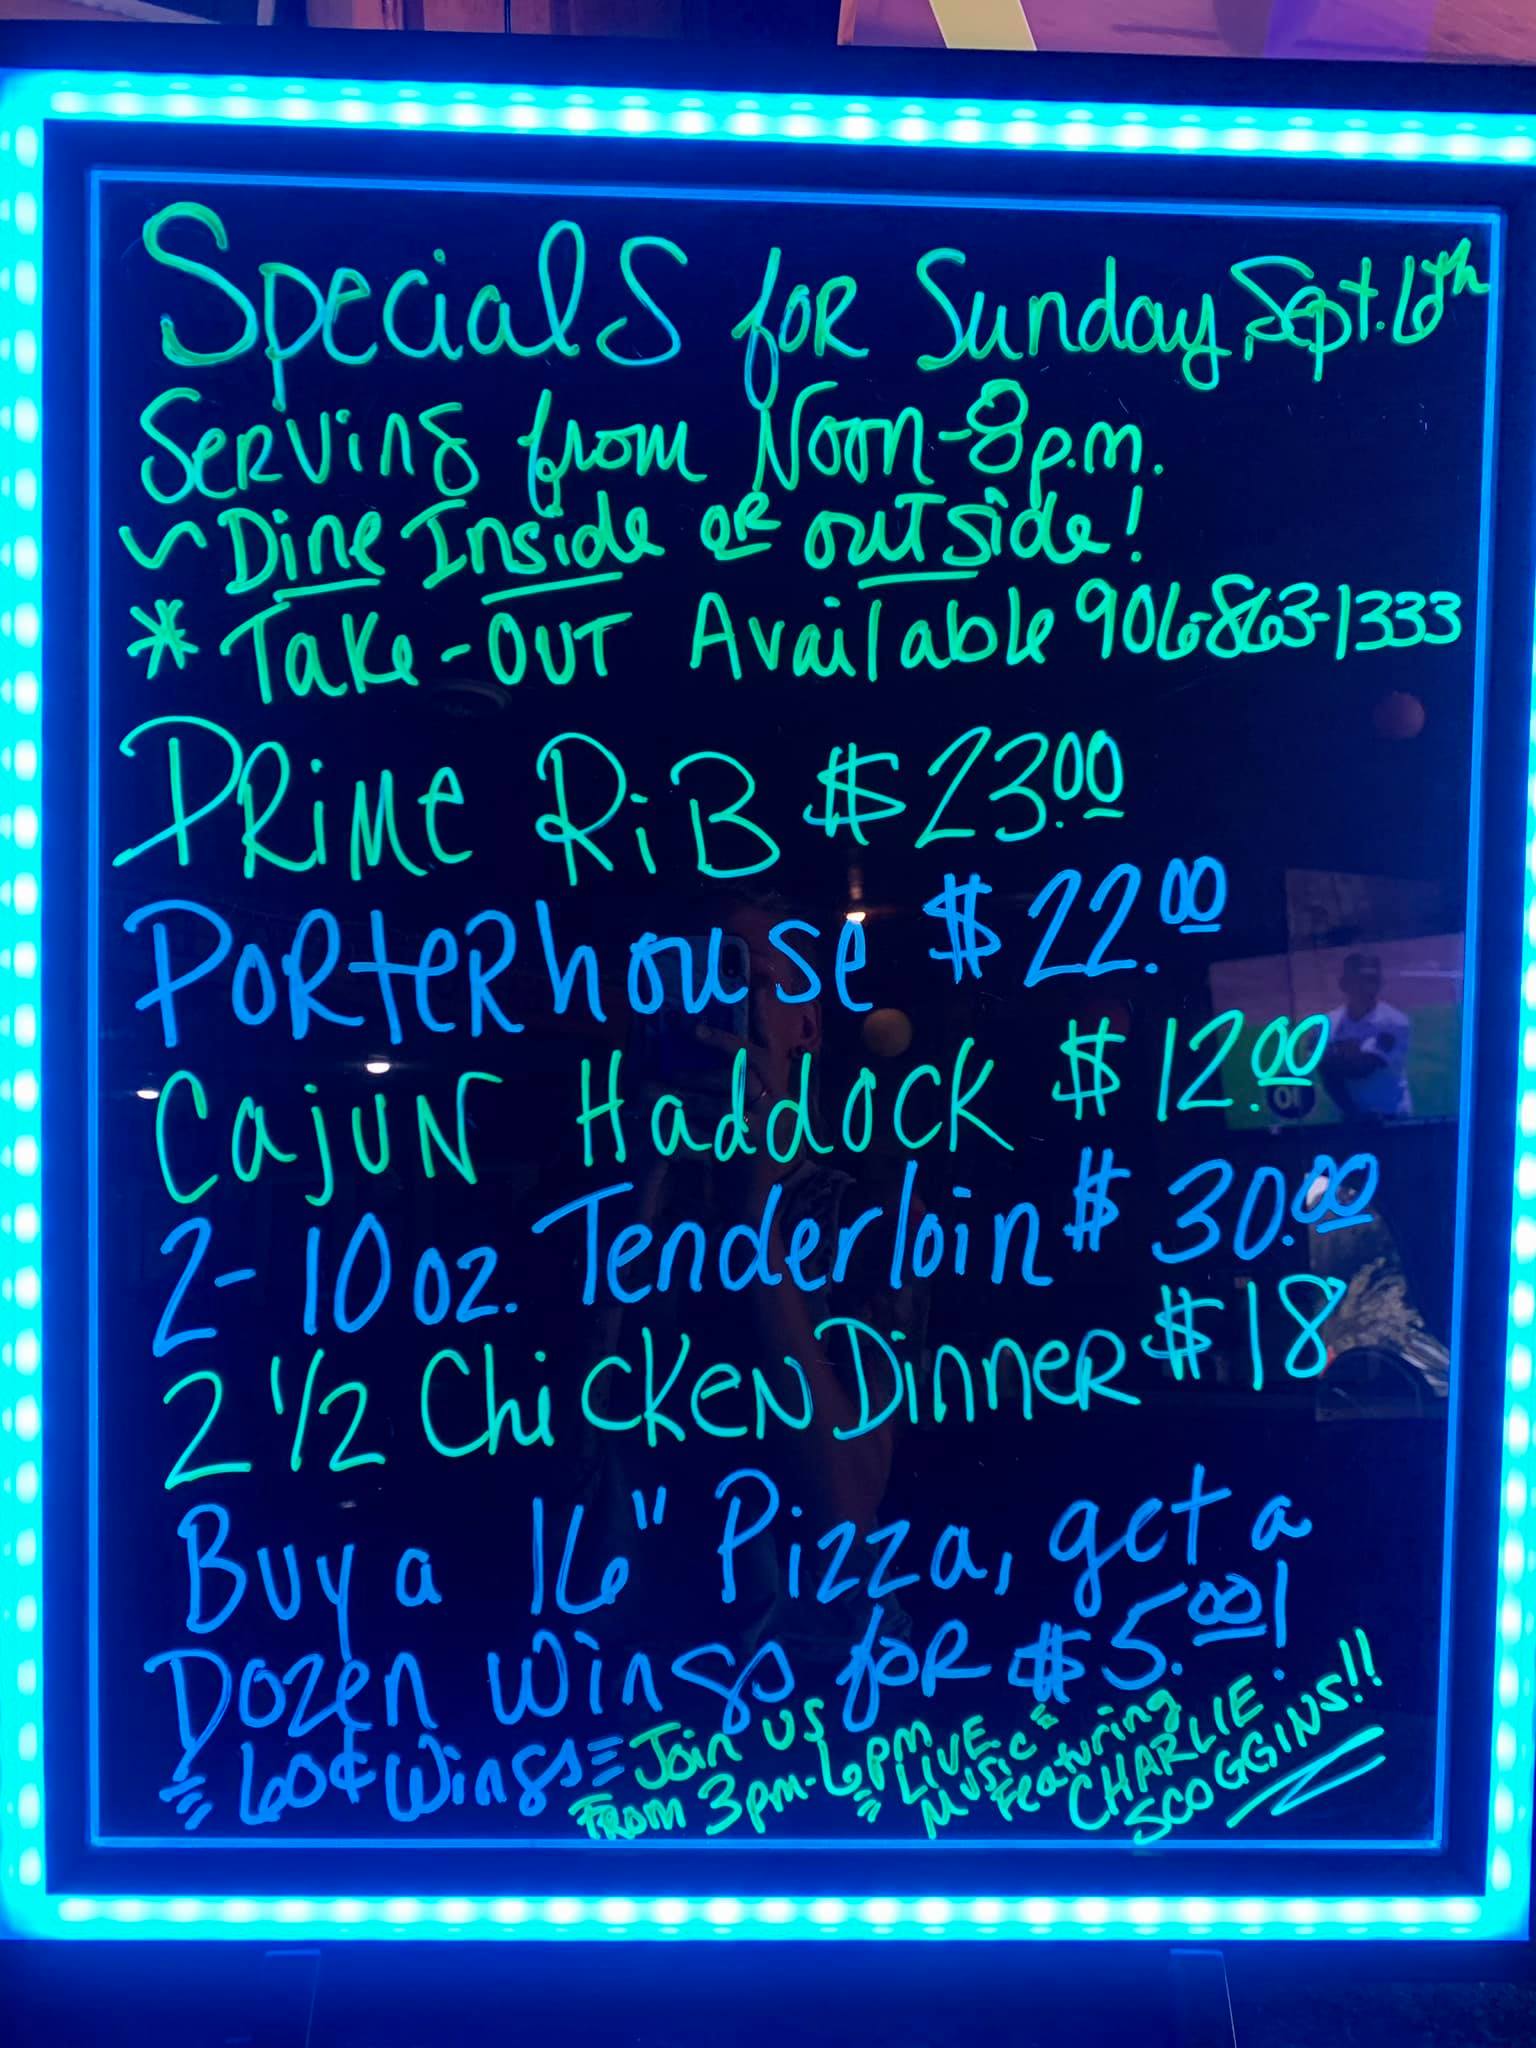 Specials for Sunday, Sept. 6th
Serving from Noon-8p.m.
~ Dine Inside or outside!
* Take-Out Available 906-863-1333
Prime Rib $23.00
Porterhouse $22.00
Cajun Haddock $12.00
2-10oz. Tenderloin $30.00
2 1/2 Chicken Dinner $18
Buy a 16" Pizza, get a
Dozen Wings for $5.00!
60¢ Wings
Join us
From 3pm-6pm
LIVE
Music
Featuring
CHARLIE
SCOGGINS!!